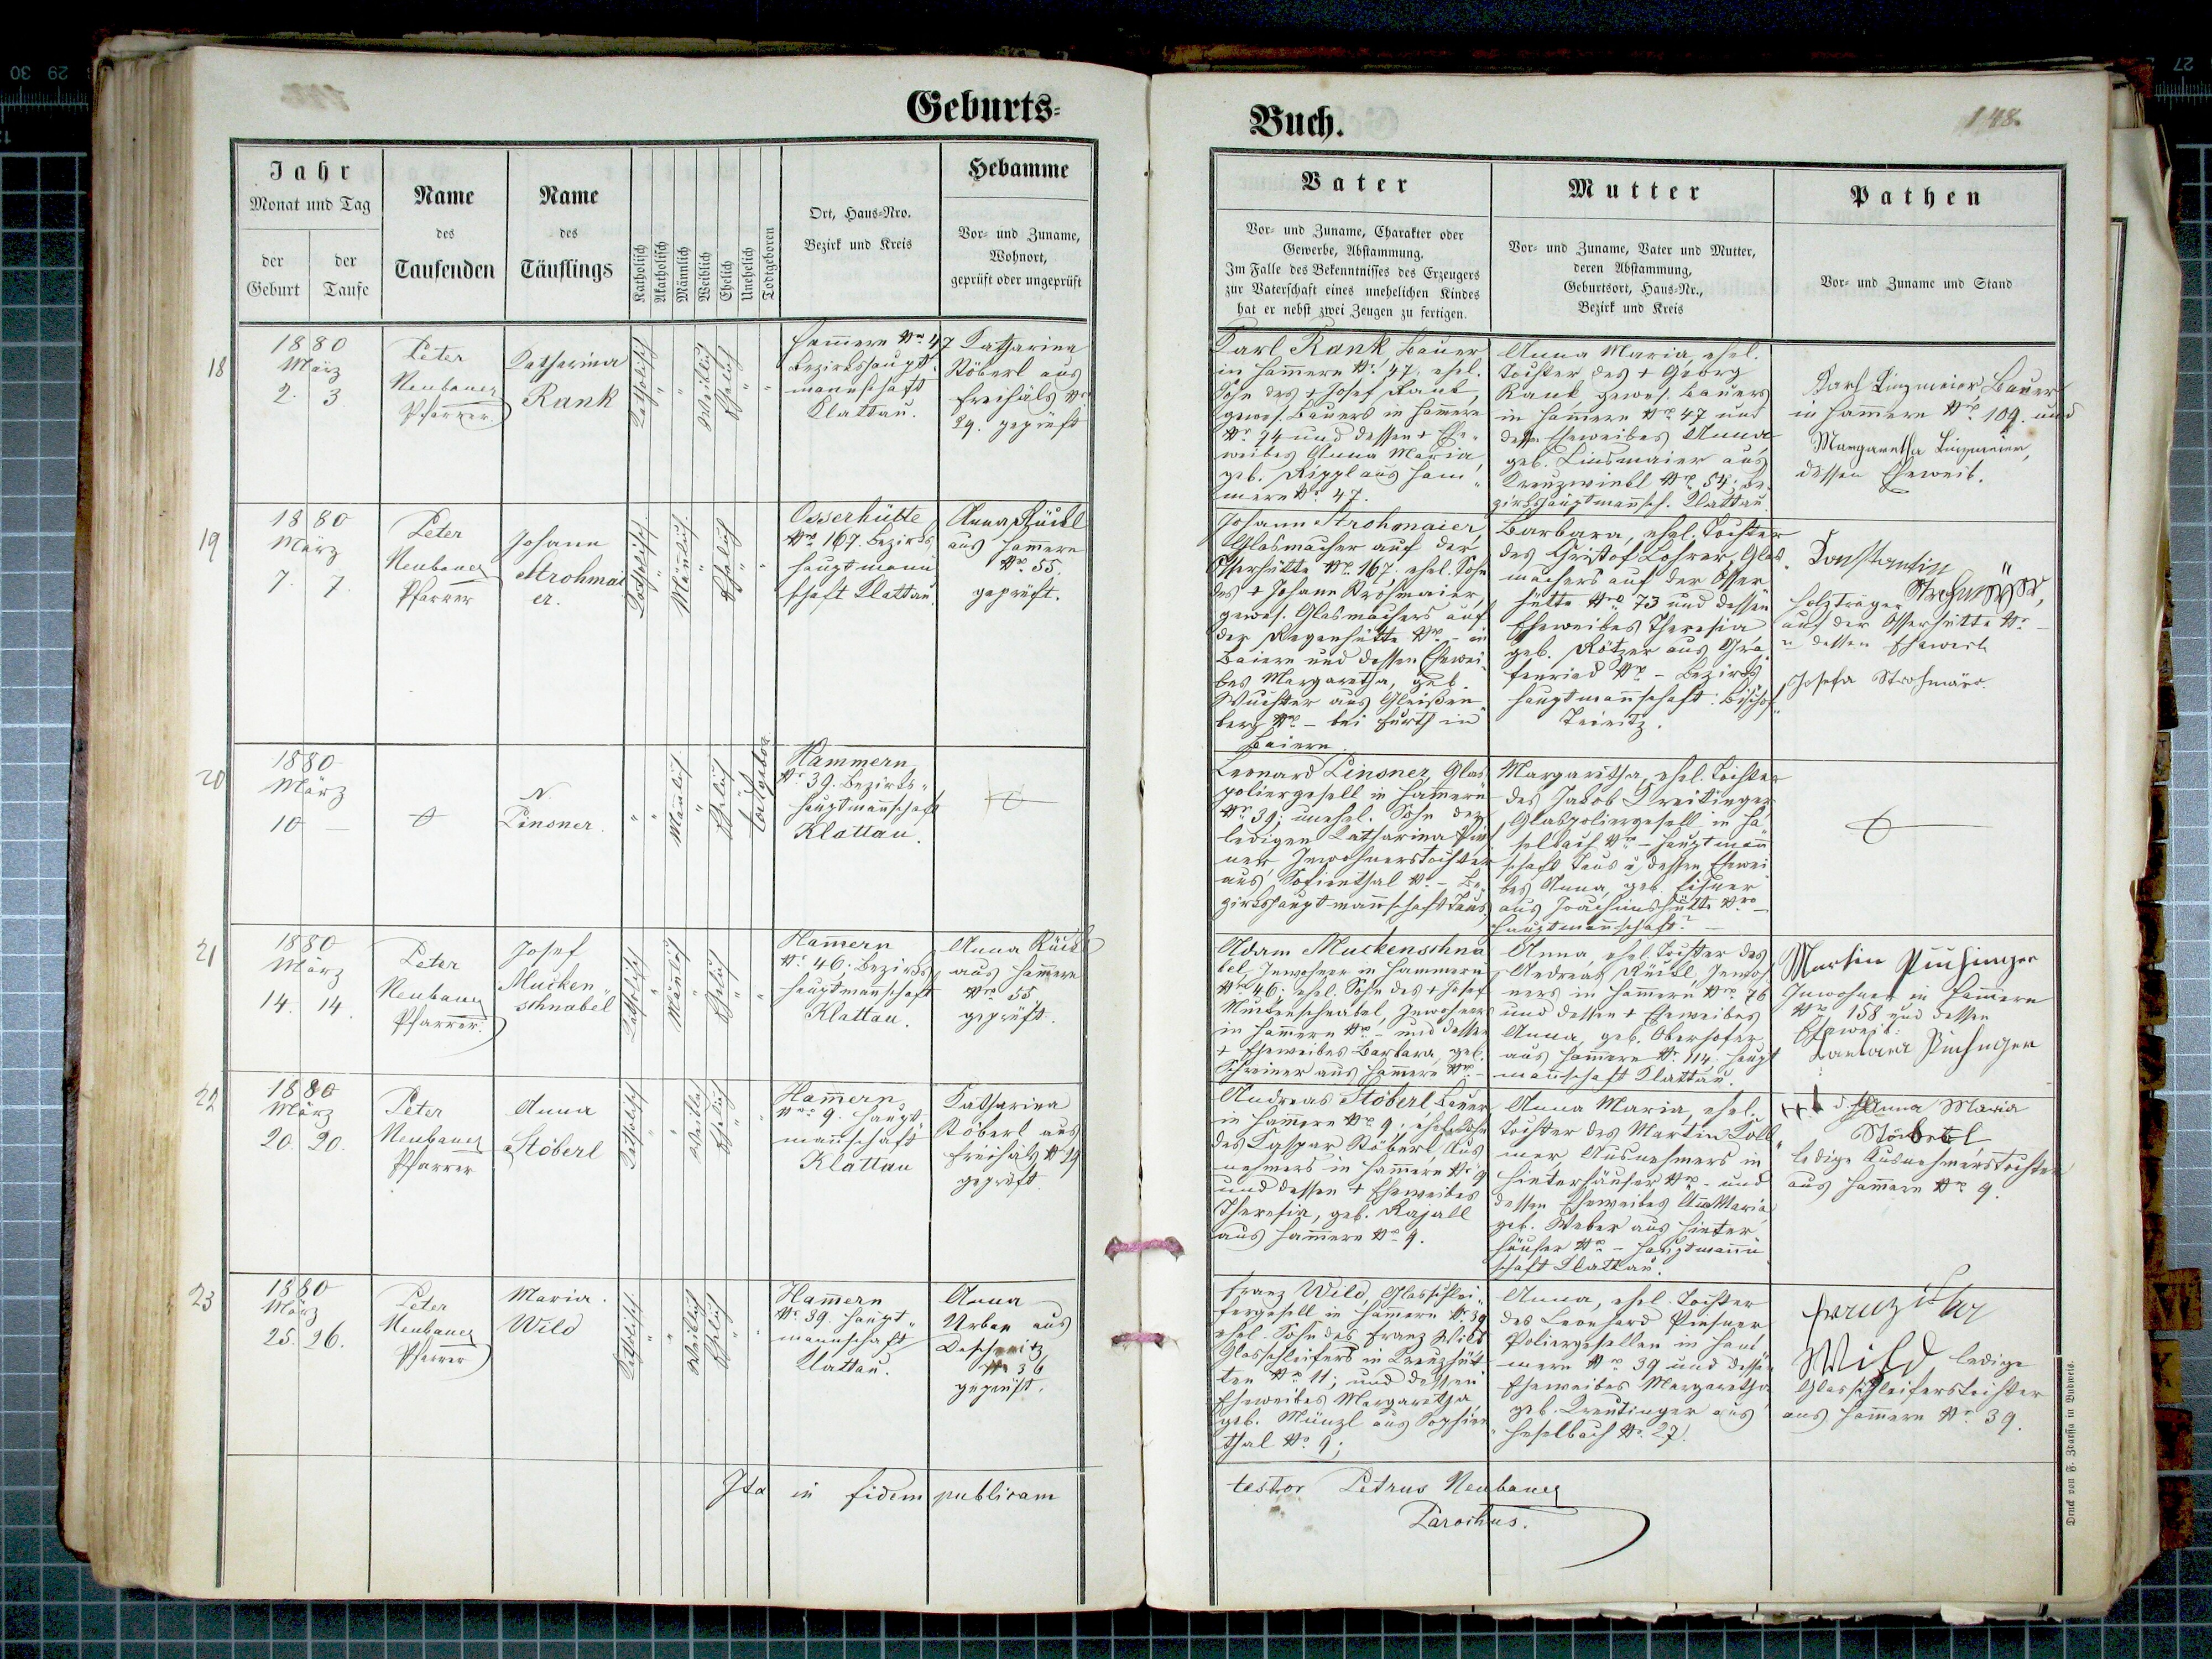 Geburts-
Jahr
Monat und Tag
der
Geburt
der
Taufe
Name
des
Taufenden
Name
des
Täuflings
Katholisch
Akatholisch
Männlich
Weiblich
Ehelich
Unehelich
Todtgeboren
Ort, Haus-Nro.
Bezirk und Kreis
Hebamme
Vor- und Zuname,
Wohnort,
geprüft oder ungeprüft
18
1880
März
2. 3
Peter
Neubauer
Pfarrer
Katharina
Rank
Katholisch
"
"
Weiblich
Ehelich
"
"
Hammern No 47
Bezirkshaupt-
mannschaft
Klattau.
Katharina
Stöberl aus
Freihäls No
29. geprüft
19
1880
März
7. 7.
Peter
Neubauer
Pfarrer
Johann
Strohmai
er.
Katholisch
"
Männlich
"
Ehelich
"
"
Osserhütte
No 167. Bezirks
hauptmann
schaft Klattau.
Anna Rückl
aus Hammern
No 55.
geprüft.
20
1880
März
10 –
N.
Pinsner.
"
"
Männlich
"
Ehelich
Hammern
No 39. Bezirks-
hauptmannschaft
Klattau.
21
1880
März
14. 14.
Peter
Neubauer
Pfarrer.
Josef
Mucken-
schnabel
Katholisch
"
Männlich
"
Ehelich
"
"
Hamern
No 46. Bezirks
hauptmannschaft
Klattau.
Anna Rückl
aus Hammern
No 55
geprüft.
22
1880
März
20. 20.
Peter
Neubauer
Pfarrer
Anna
Stöberl
Katholisch
"
"
Weiblich
Ehelich
"
"
Ham̄ern
No 9. Haupt-
mannschaft
Klattau
Katharina
Stöberl aus
Freihäls No 29
geprüft.
23
1880
März
25. 26.
Peter
Neubauer
Pfarrer
Maria.
Wild
Katholisch
"
"
Weiblich
Ehelich
"
"
Ham̄ern
No 39. Haupt-
mannschaft
Klattau.
Anna
Urban aus
Deschenitz
No 36
geprüft.
Ita in fidem publicam
Buch.
148.
Vater
Vor- und Zuname, Charakter oder
Gewerbe, Abstammung.
Im Falle des Bekenntnisses des Erzeugers
zur Vaterschaft eines unehelichen Kindes
hat er nebst zwei Zeugen zu fertigen.
Mutter
Vor- und Zuname, Vater und Mutter,
deren Abstammung,
Geburtsort, Haus-Nr.,
Bezirk und Kreis
Pathen
Vor- und Zuname und Stand
Karl Rank Bauer
in Hammern No 47, ehel.
Sohn des + Josef Rank,
gewes. Bauers in Hammern
No 74 und dessen + Ehe-
weibes Anna Maria,
geb. Rippl aus Ham-
mern No 47.
Anna Maria, ehel.
Tochter des + Georg
Rank gewes. Bauers
in Hammern No 47 und
dessen Eheweibes Anna,
geb. Linsmaier aus
Kreuzwinkl No 54; Be-
zirkshauptmannsch. Klattau.
Karl Linzmeier, Bauer
in Hammern No 109. und
Margaretha Linzmeier,
dessen Eheweib.
Johann Strohmaier,
Glasmacher auf der
Osserhütte No 167, ehel. Sohn
des + Johann Strohmaier,
gewes. Glasmachers auf
der Regenhütte No – in
Baiern und dessen Ehewei-
bes Margaretha, geb.
Wuchter aus Gleißen-
berg No – bei Furth in
Baiern.
Barbara, ehel. Tochter
des Christof Lohrer, Glas
machers auf der Osser
hütte No 73 und dessen
Eheweibes Theresia
geb. Rötzer aus Gra
fenried No – Bezirks
hauptmannschaft: Bischof
Teinitz.
Konstantin
Holzträger
auf der Osserhütte No –
u dessen Eheweib
Josefa Strohmaier.
Leonard Pinsner, Glas
poliergesell in Hammern
No 39; unehel. Sohn der
ledigen Katharina Pins
ner Inwohnerstochter
aus Sofienthal No – Be-
zirkshauptmannschaft Taus.
Margaretha, ehel. Tochter
des Jakob Kreitinger
Glaspoliergesell in Ha
selbach No – Hauptmann
schaft Taus u. dessen Ehewei
bes Anna, geb. Eisner
aus Joachimshütte No –
Hauptmannschaft? –
Adam Muckenschna
bel, Inwohner in Hammern
No 46. ehel. Sohn des + Josef
Muckenschnabel, Inwohners
in Hammern No – und dessen
+ Eheweibes Barbara, geb.
Schreiner aus Hammern No –
Anna, ehel. Tochter des
Andreas Rückl, Inwoh
ners in Hammern No 76
und dessen + Eheweibes
Anna, geb. Oberhofer
aus Hammern No 114. Haupt
mannschaft Klattau.
Martin
Inwohner in Hammern
No 158 und dessen
Eheweib:
Barbara
Andreas Stöberl Bauer
in Hammern No 9; ehel. Sohn
des Kaspar Stöberl, Aus
nehmers in Hammern No 9
und dessen + Eheweibes
Theresia, geb. Rajall
aus Hammern No 9.
Anna Maria, ehel.
Tochter des Martin Koll-
mer Ausnehmers in
Hinterhäuser No – und
dessen Eheweibes An̄a Maria
geb. Weber aus Hinter
häuser No – Hauptmann
schaft Klattau.
+++ d. Anna Maria
Stöberl
ledige Ausnehmerstochter
aus Hammern No 9.
Franz Wild, Glasschlei-
fergesell in Hammern No 39
ehel. Sohn des Franz Wild
Glasschleifers in Kreuzhüt
ten No 11; und dessen
Eheweibes Margaretha
geb. Münzl aus Sophien
thal No 9;
Anna, ehel. Tochter
des Leonhard Pinsner
Poliergesellen in Ham
mern No 39 und dessen
Eheweibes Margaretha
geb. Kreutinger aus
Haselbach No 27.
Wild, ledige
Glasschleiferstochter
aus Hammern No 39.
testor Petrus Neubauer
Parochus.
Druck von F. Zdarssa in Budweis.